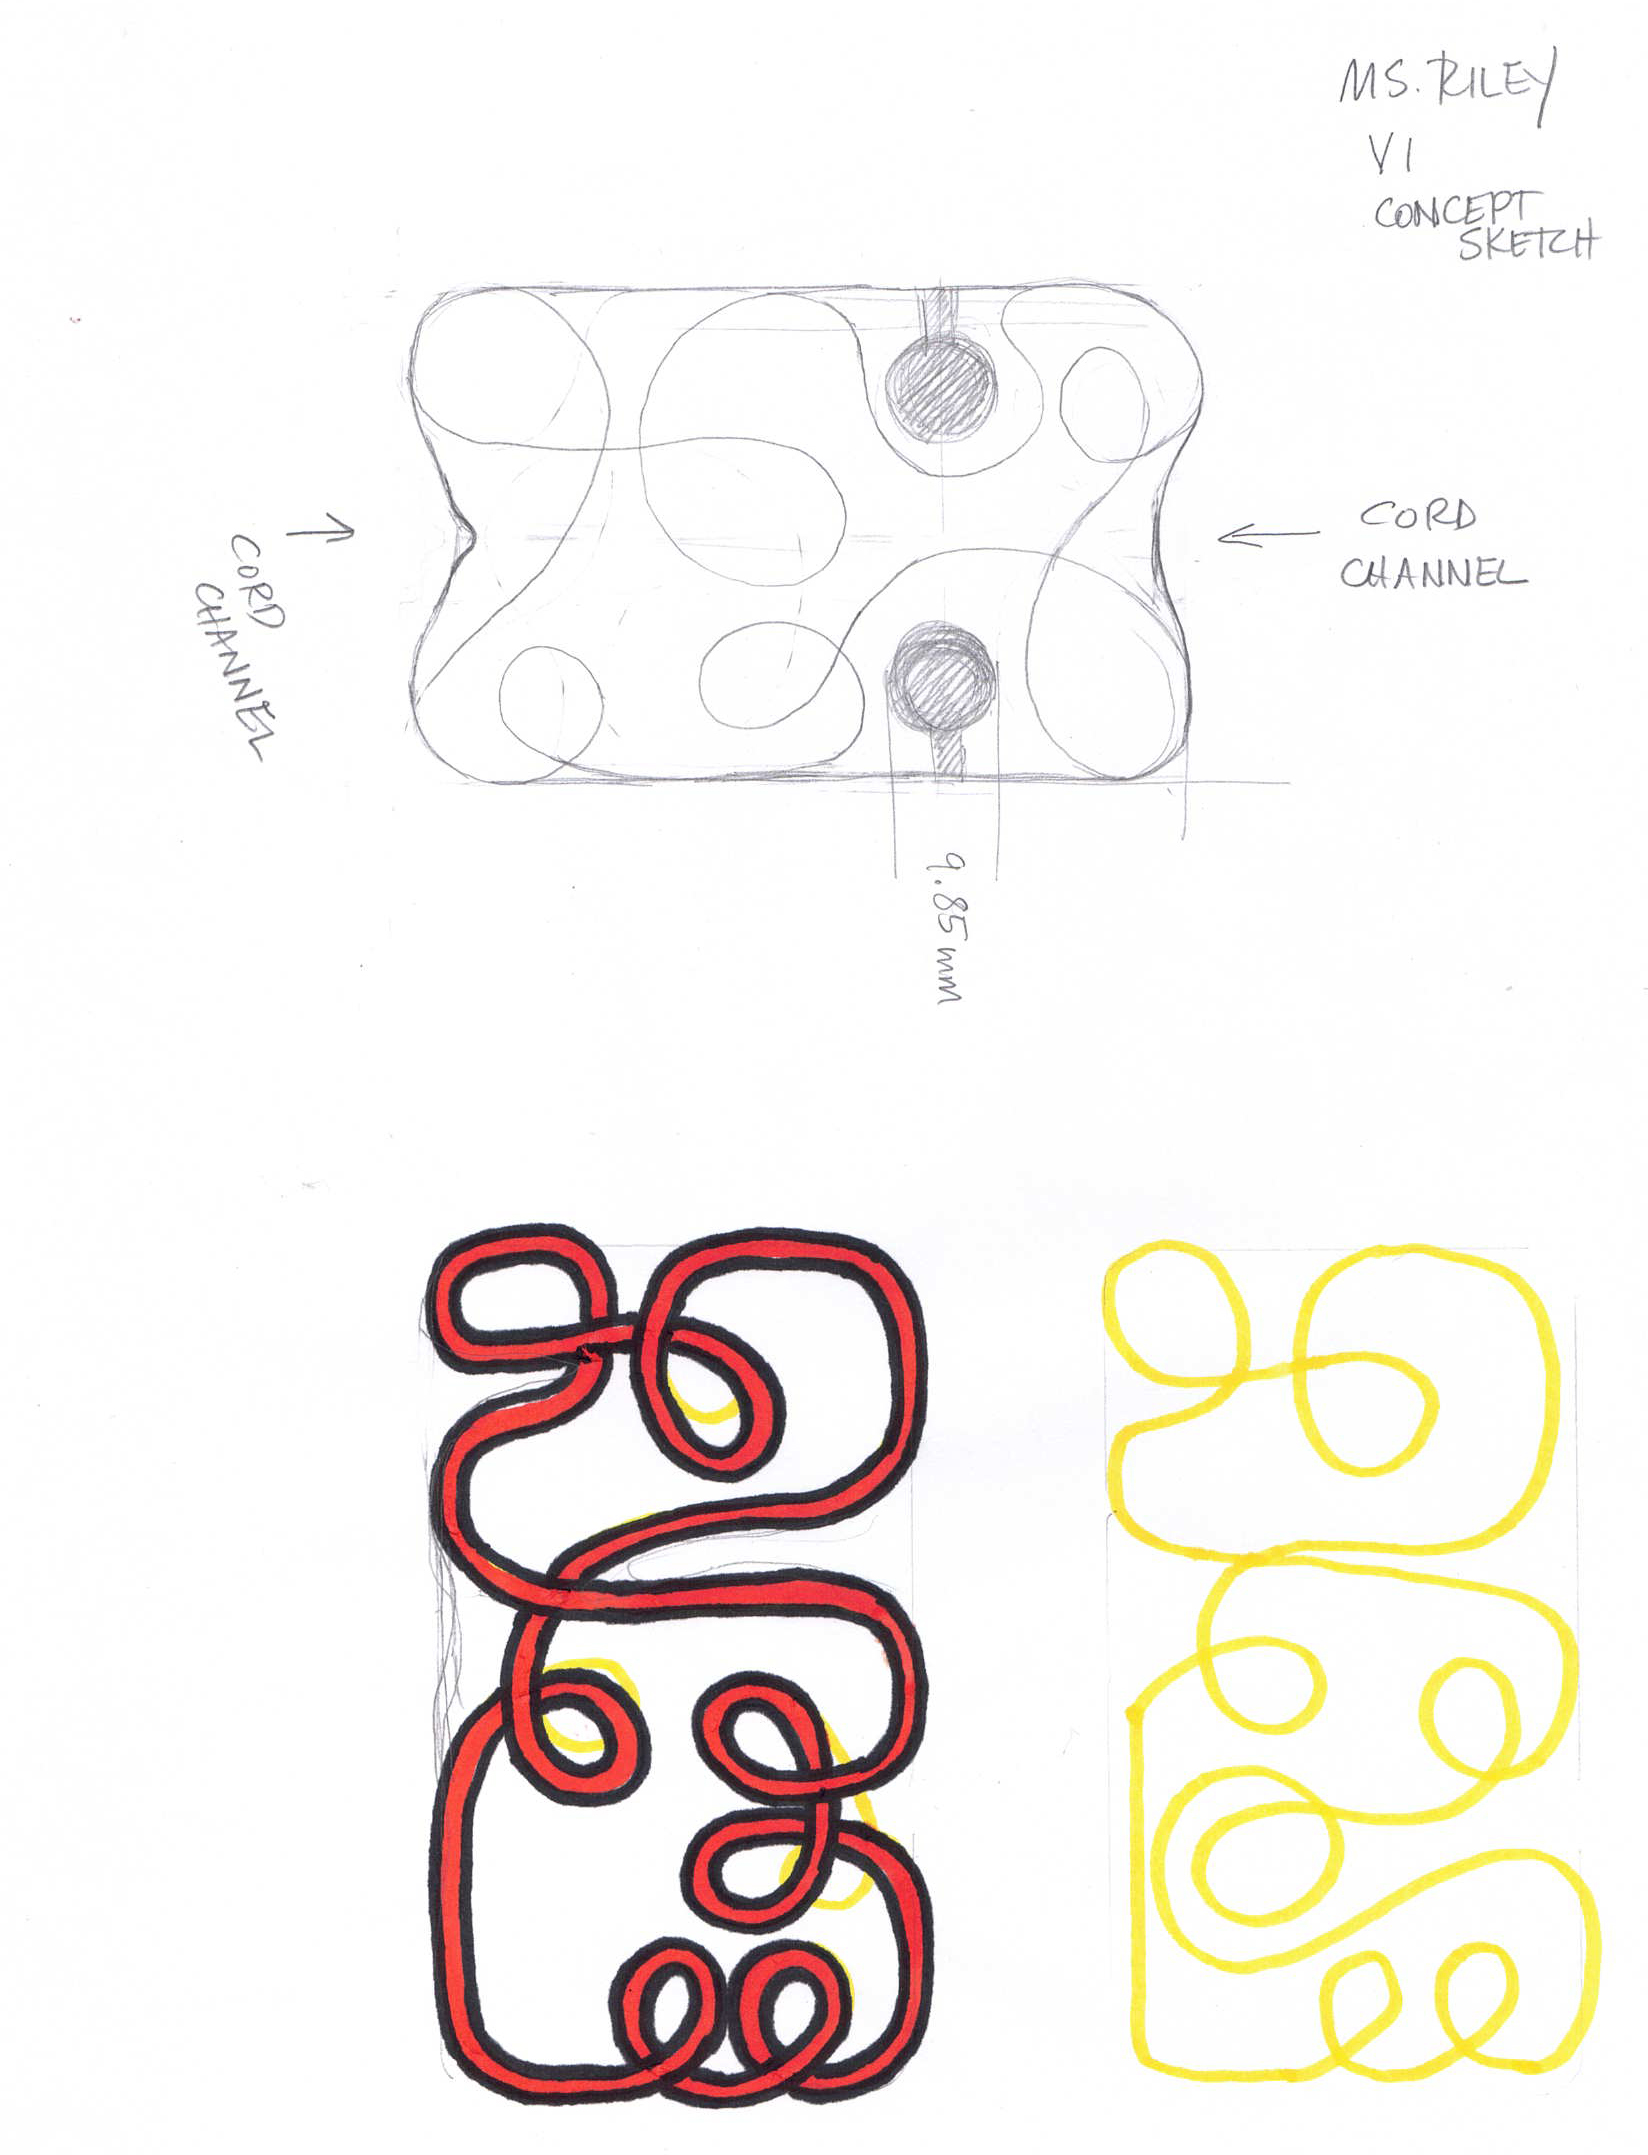 MS. RILEY
V1
CONCEPT
SKETCH
CORD
CHANNEL
CORD
CHANNEL
9.85mm